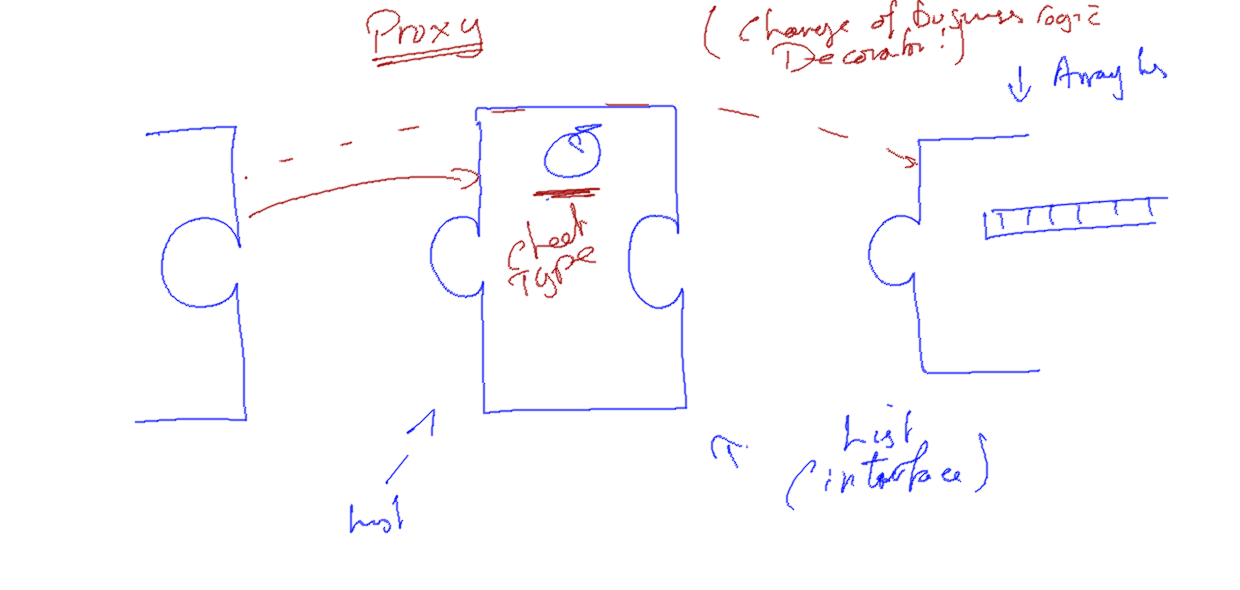 Proxy
( Change of business logic
Decorator!)
↓ Array Lis
Check
Type
List
(interface)
List